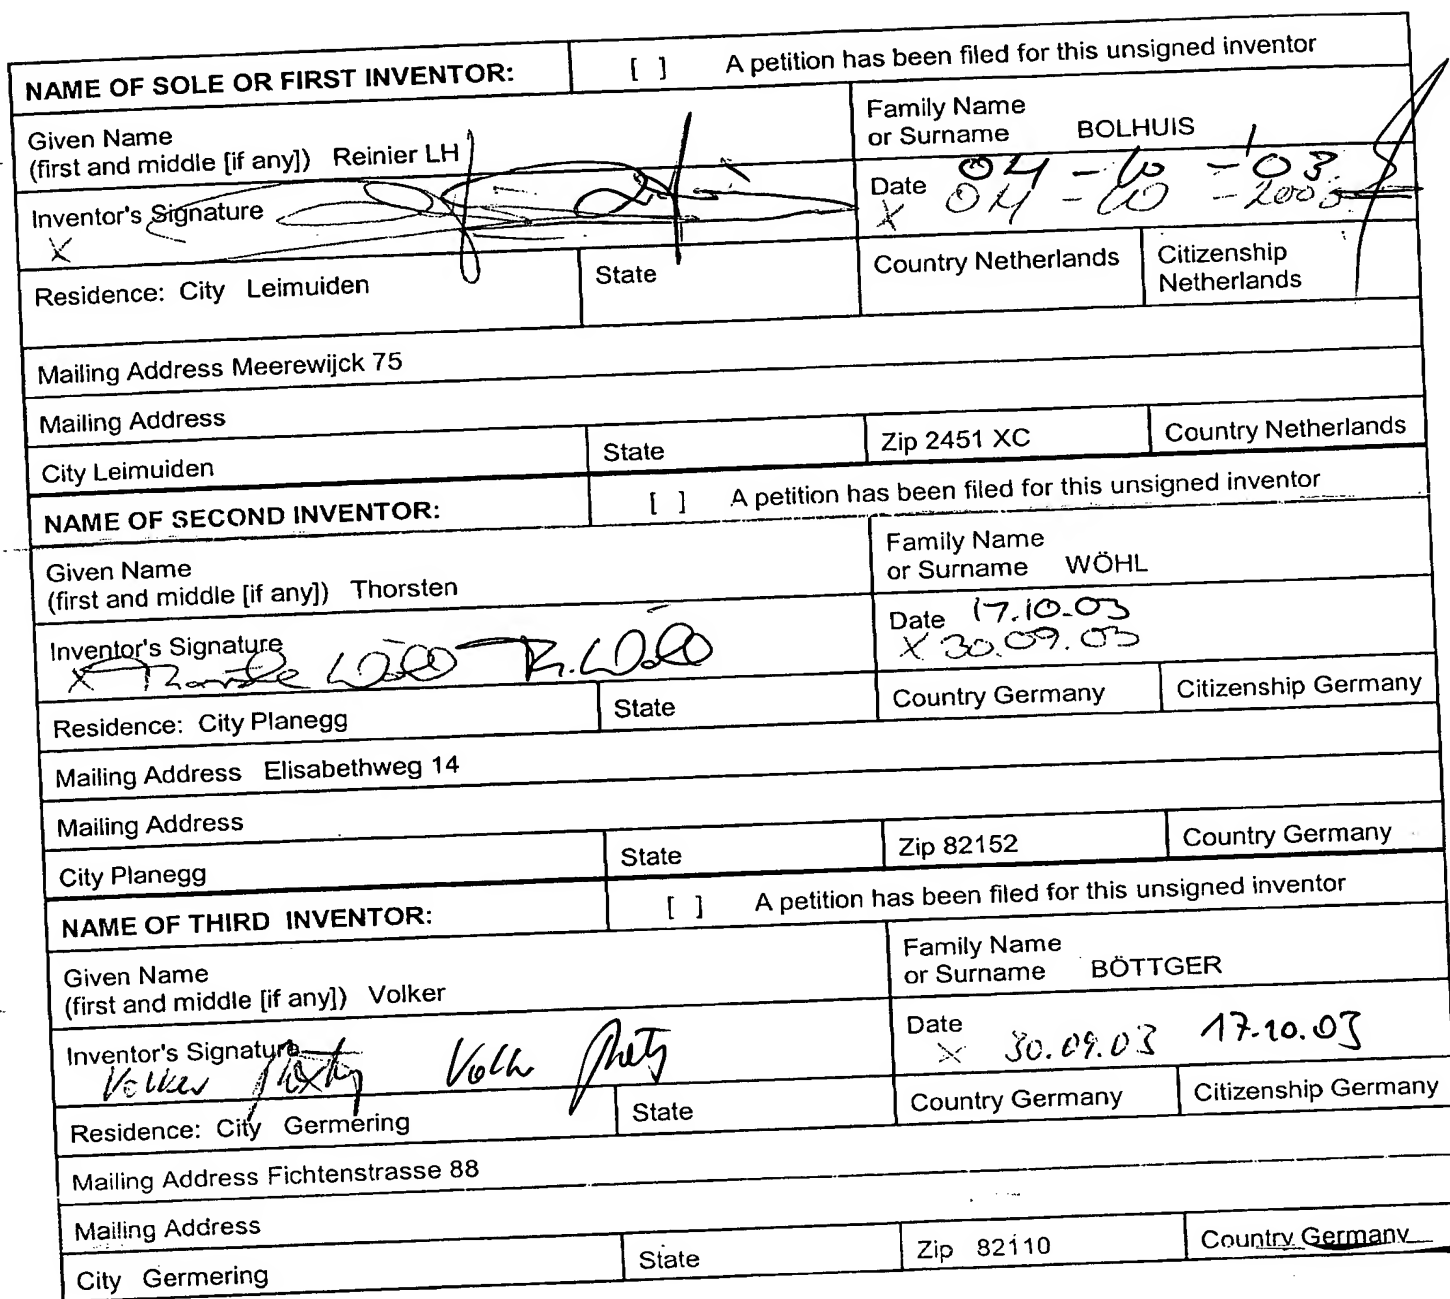 NAME OF SOLE OR FIRST INVENTOR: [ ] A petition has been filed for this unsigned inventor
Given Name
(first and middle [if any]) Reinier LH
Family Name
or Surname BOLHUIS
Inventor's Signature
X
Date 04-10-'03
X 04-10-2003
Residence: City Leimuiden State Country Netherlands Citizenship
Netherlands
Mailing Address Meerewijck 75
Mailing Address
City Leimuiden State Zip 2451 XC Country Netherlands
NAME OF SECOND INVENTOR: [ ] A petition has been filed for this unsigned inventor
Given Name
(first and middle [if any]) Thorsten
Family Name
or Surname WÖHL
Inventor's Signature
X
Date 17.10.03
X 30.09.03
Residence: City Planegg State Country Germany Citizenship Germany
Mailing Address Elisabethweg 14
Mailing Address
City Planegg State Zip 82152 Country Germany
NAME OF THIRD INVENTOR: [ ] A petition has been filed for this unsigned inventor
Given Name
(first and middle [if any]) Volker
Family Name
or Surname BÖTTGER
Inventor's Signature
Volker
Date
X 30.09.03 17.10.03
Residence: City Germering State Country Germany Citizenship Germany
Mailing Address Fichtenstrasse 88
Mailing Address
City Germering State Zip 82110 Country Germany